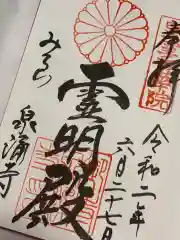 奉拝
令和二年
六月二十七日
霊明殿
みてら
泉涌寺